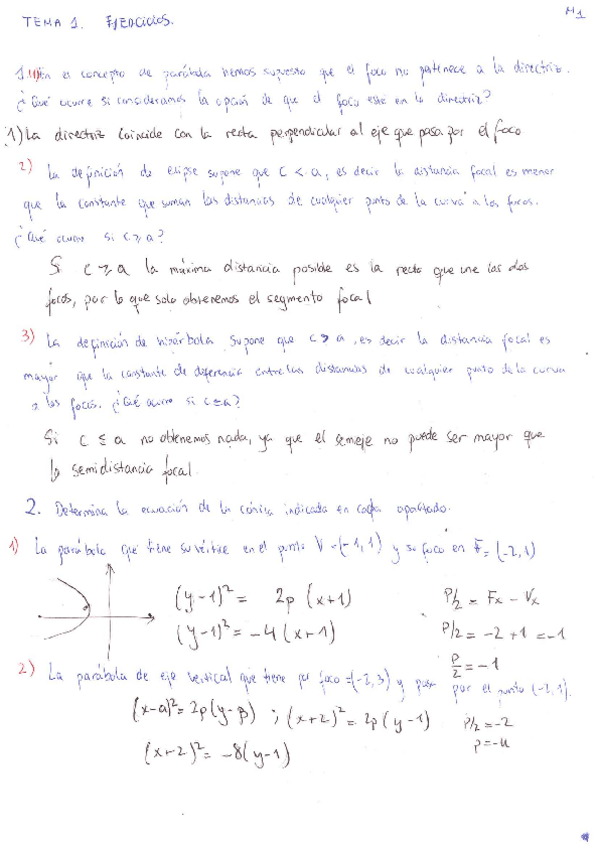 TEMA 1. EJERCICIOS.
M1
1. 1) En el concepto de parábola hemos supuesto que el foco no pertenece a la directriz.
¿Qué ocurre si consideramos la opción de que el foco esté en la directriz?
1) La directriz coincide con la recta perpendicular al eje que pasa por el foco
2) La definición de elipse supone que c < a, es decir la distancia focal es menor
que la constante que suman las distancias de cualquier punto de la curva a los focos.
¿Qué ocurre si c ≥ a?
Si c ≥ a la máxima distancia posible es la recta que une los dos
focos, por lo que solo obtenemos el segmento focal
3) La definición de hipérbola supone que c > a, es decir la distancia focal es
mayor que la constante de diferencia entre las distancias de cualquier punto de la curva
a los focos. ¿Qué ocurre si c ≤ a?
Si c ≤ a no obtenemos nada, ya que el semeje no puede ser mayor que
la semidistancia focal.
2. Determina la ecuación de la cónica indicada en cada apartado.
1) La parábola que tiene su vértice en el punto V=(-1,1) y su foco en F=(-2,1)
(y-1)² = 2p (x+1)
(y-1)² = -4 (x+1)
P/2 = Fx - Vx
P/2 = -2 + 1 = -1
P/2 = -1
2) La parábola de eje vertical que tiene por foco =(-2,3) y pasa por el punto (-2,1).
(x-α)² = 2p(y-β) ; (x+2)² = 2p(y-1)
(x+2)² = -8(y-1)
P/2 = -2
p = -4